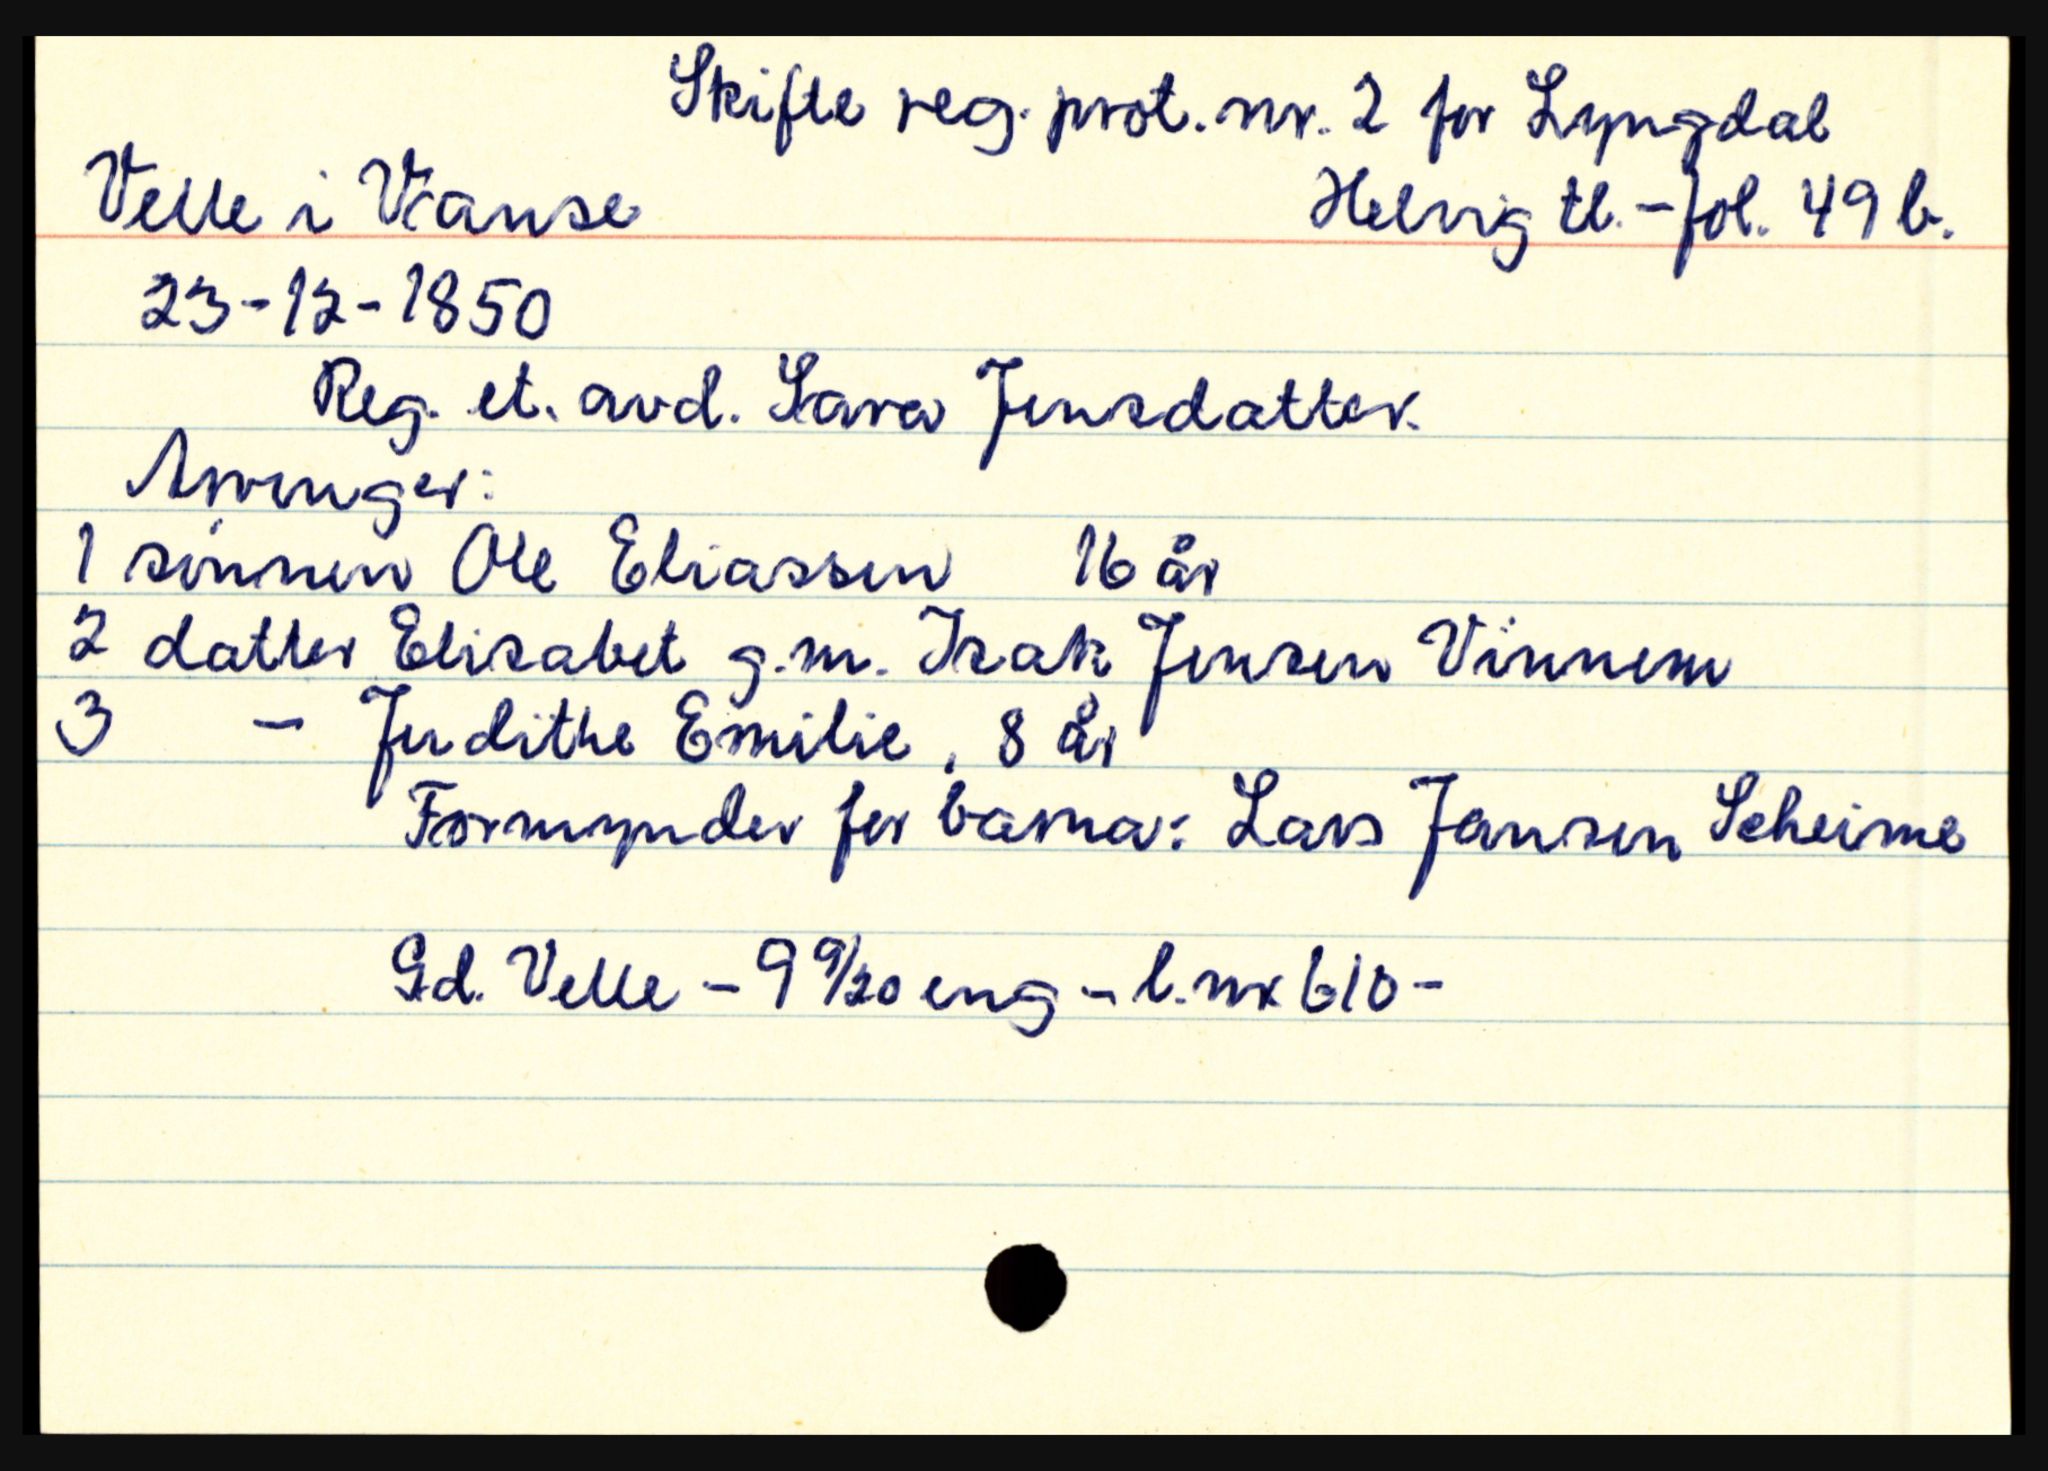 Skifte reg. prot. nr. 2 for Lyngdal
Velle i Vanse Helvig tl. - fol. 49 b.
23-12-1850
Reg. et. avd. Sara Jensdatter.
Arvinger:
1 sønnen Ole Eliassen 16 år
2 datter Elisabet g.m. Isak Jensen Vinnem
3 - Judithe Emilie, 8 år
Formynder for barna: Lars Jansen Scheime
Gd. Velle - 9 9/20 eng - l. nr 610 -